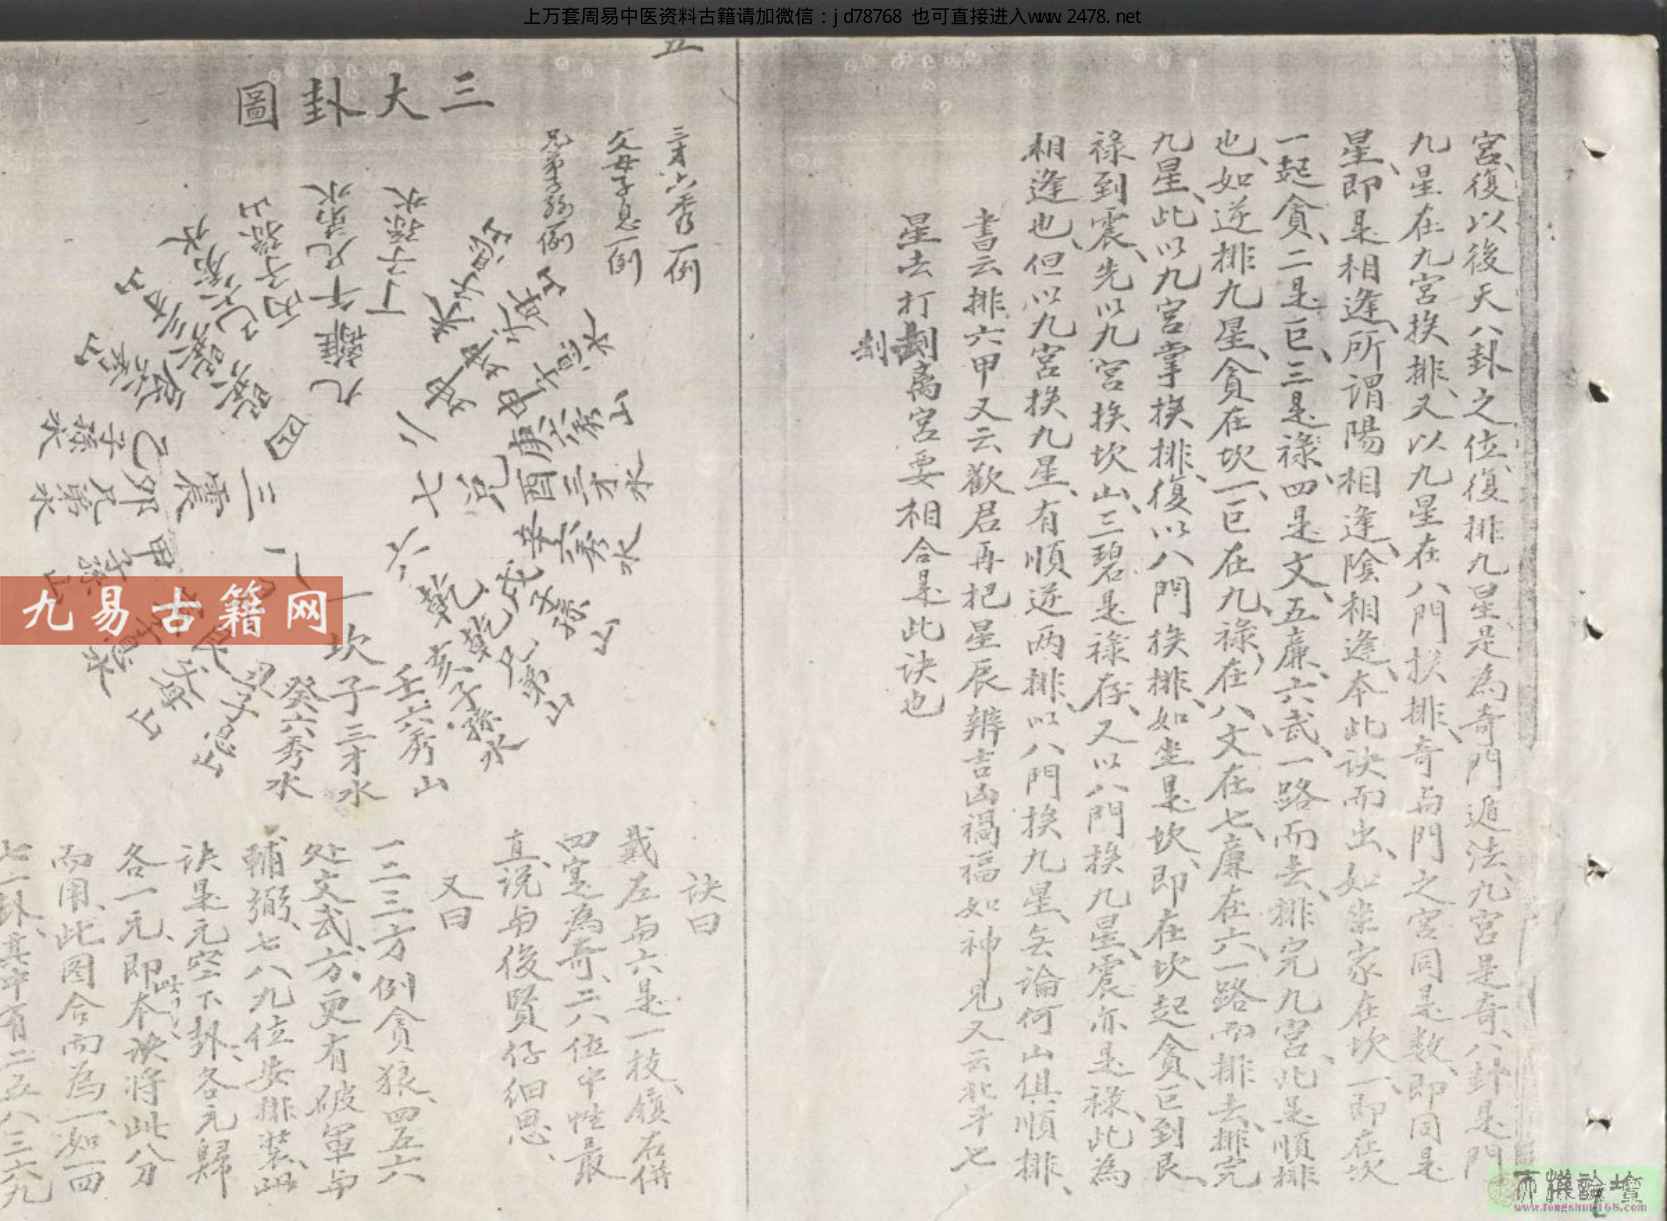 上万套周易中医资料古籍请加微信：jd78768 也可直接进入www.2478.net
宮、復以後天八卦之位、復排九星、是為奇門遁法、九宮是奇、八卦是門
九星在九宮挨排、又以九星在八門挨排、奇与門之宮同是数、即同是
星、即是相逢、所謂陽相逢、陰相逢、本此訣而出、如坐家在坎、一即在坎
一起貪、二是巨、三是祿、四是文、五廉、六武、一路而去、排完九宮、此是順排
也、如逆排九星、貪在坎一、巨在九、祿在八、文在七、廉在六、一路而排去、排完
九星、此以九宮掌挨排、復以八門挨排、如坐是坎、即在坎起貪、巨到艮、
祿到震、先以九宮挨坎山、三碧是祿存、又以八門挨九星、震亦是祿、此為
相逢也、但以九宮挨九星、有順逆两排、以八門挨九星、无論何山俱順排、
書云排六甲又云歡君再把星辰辨吉凶禍福如神見又云北斗七
星去打刼离宮要相合是此訣也
刼
五
三大卦圖
三才六秀一例
父母子息一例
兄弟子孫一例
九離
午兄弟水
丁子孫水
丙子孫山
四
三震
乙卯甲
子孫水
兄弟水
子孫山
八
七兌
庚六秀山
酉三才水
辛六秀水
六乾
戌子孫山
乾兄弟山
亥子孫水
一坎
壬六秀山
子三才水
癸六秀水
訣曰
戴左与六是一枝、鎮右併
四寔為奇、二八位中性最
直、说与後賢仔细思、
又曰
一二三方例貪狼、四五六
处文武方、更有破軍与
輔弼、七八九位安排裝、此
訣是元空下卦、各元歸
各一元、即本訣將此八分
而用、此图合而為一、如一四
七一卦、其中有二五八三六九
九易古籍网
www.fengshui-168.com